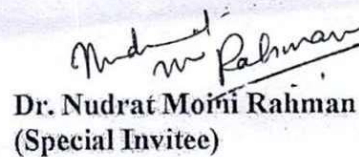 Nudrat
M Rahman
Dr. Nudrat Moini Rahman
(Special Invitee)